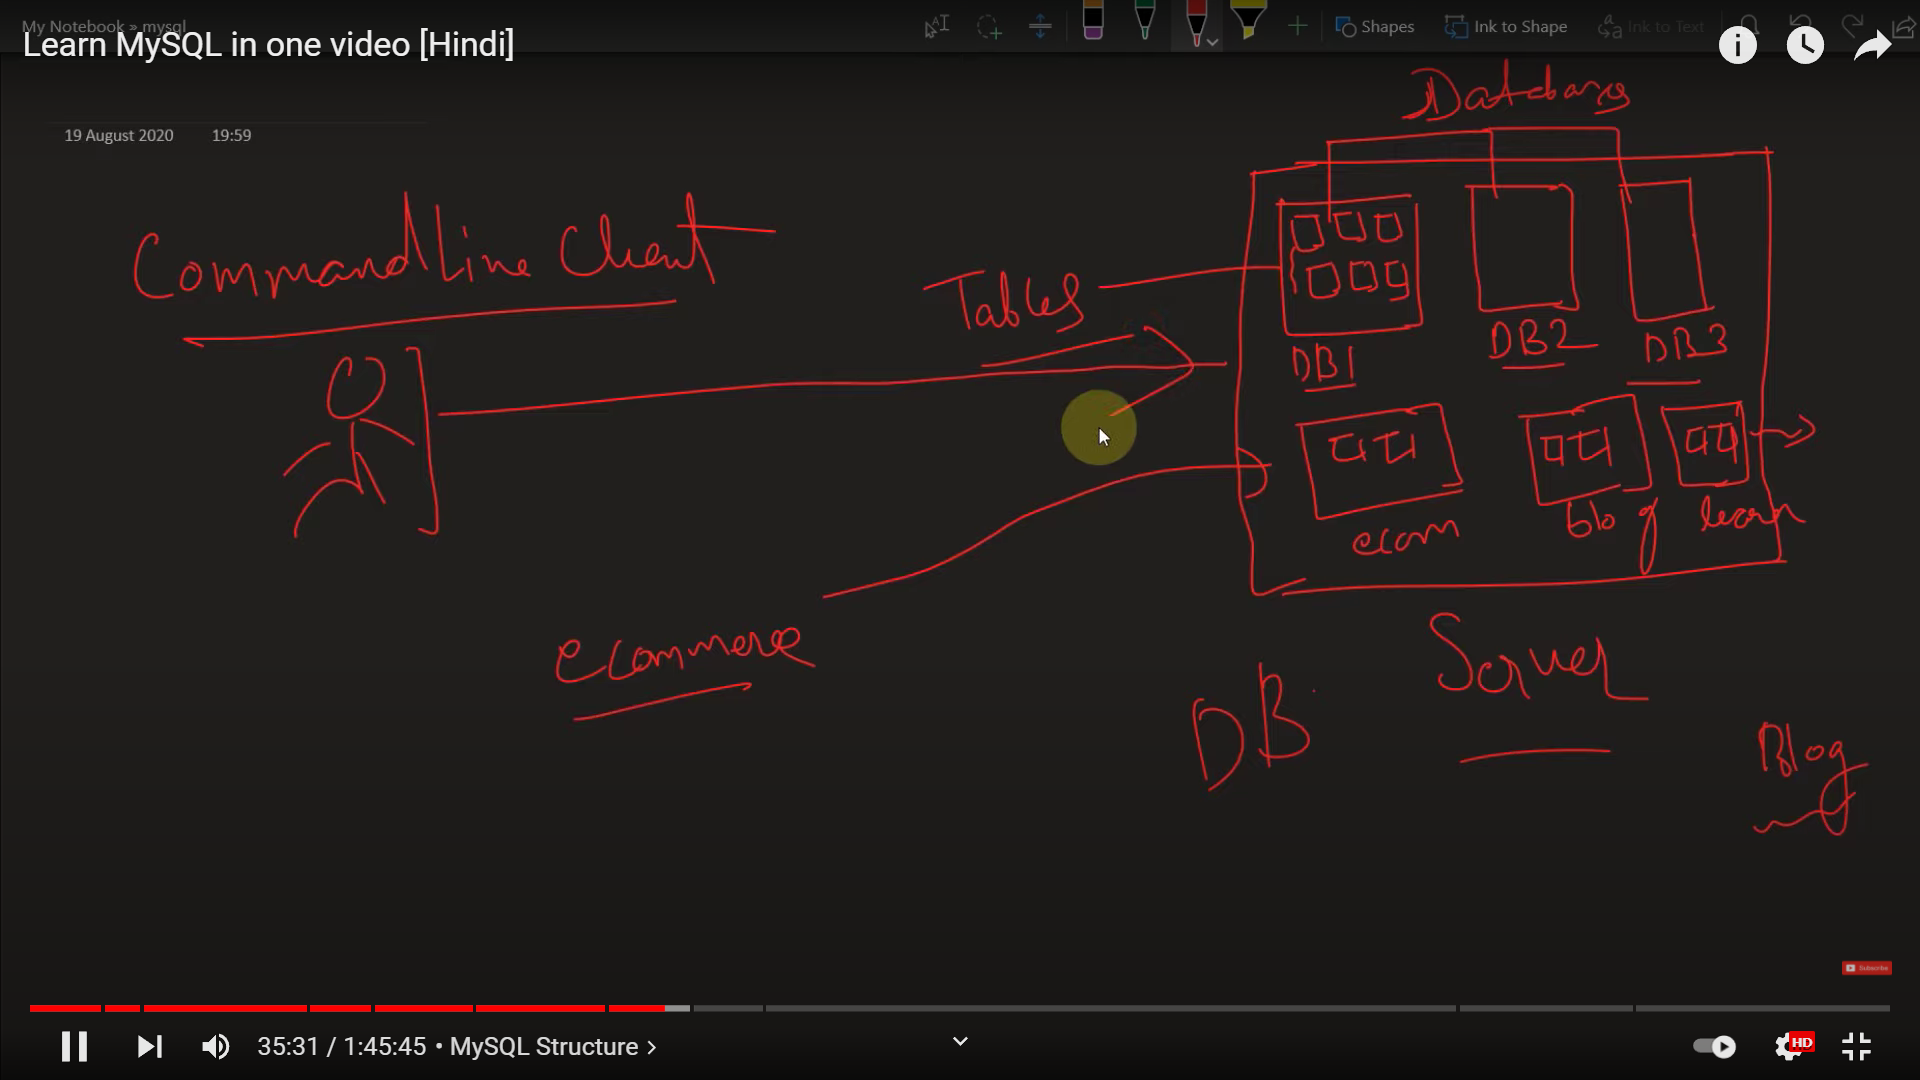 My Notebook » mysql
Learn MySQL in one video [Hindi]
Shapes
Ink to Shape
Ink to Text
19 August 2020 19:59
Databases
Command Line Client
Tables
DB1
DB2
DB3
ecom
blog
learn
ecommerce
DB
Server
Blog
Subscribe
35:31 / 1:45:45 • MySQL Structure >
HD